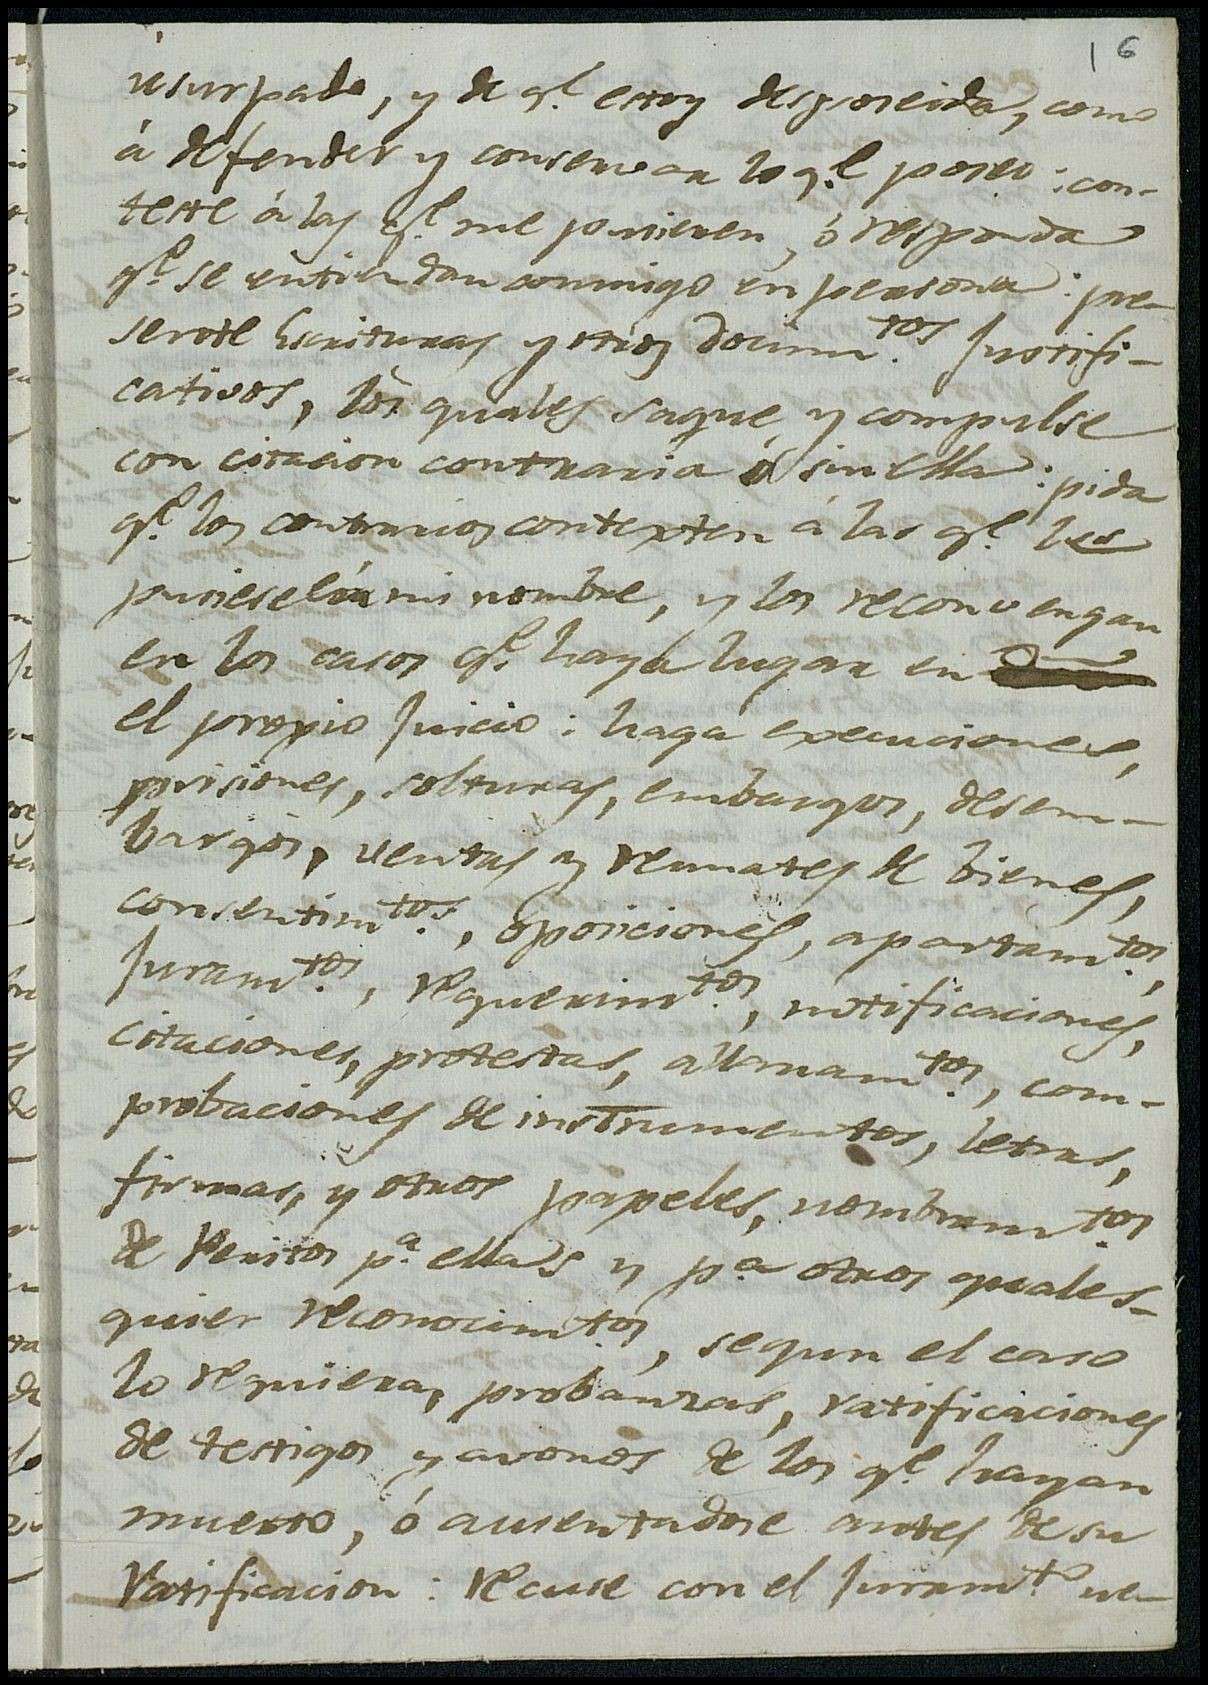 16
usurpado, y de q.ͤ estoy desposeida, como
á defender y conservar lo q.ͤ poseo: con-
teste á las q.ͤ me pusieren, ó responda
q.ͤ se entiendan conmigo en persona: pre-
sente Escrituras y otros docum.tos Justifi-
cativos, los quales saque, y compulse
con citacion contraria ó sin ella: pida
q.ͤ los contrarios contexten á las q.ͤ les
pusiese en mi nombre, y los reconvengan
en los casos q.ͤ haya lugar en
el propio Juicio: haga execuciones,
prisiones, solturas, embargos, desem-
bargos, ventas y remates de bienes,
consentim.tos, oposiciones, apartam.tos,
Juram.tos, requerim.tos, notificaciones,
citaciones, protestas, allanam.tos, com-
probaciones de instrumentos, letras,
firmas, y otros papeles, nombram.tos
de Peritos p.a ellas y p.a otros quales-
quier reconocim.tos, segun el caso
lo requiera, probanzas, ratificaciones
de testigos y avonos de los q.ͤ hayan
muerto, ó ausentadose antes de su
Ratificacion: recuse con el Juram.to ne-